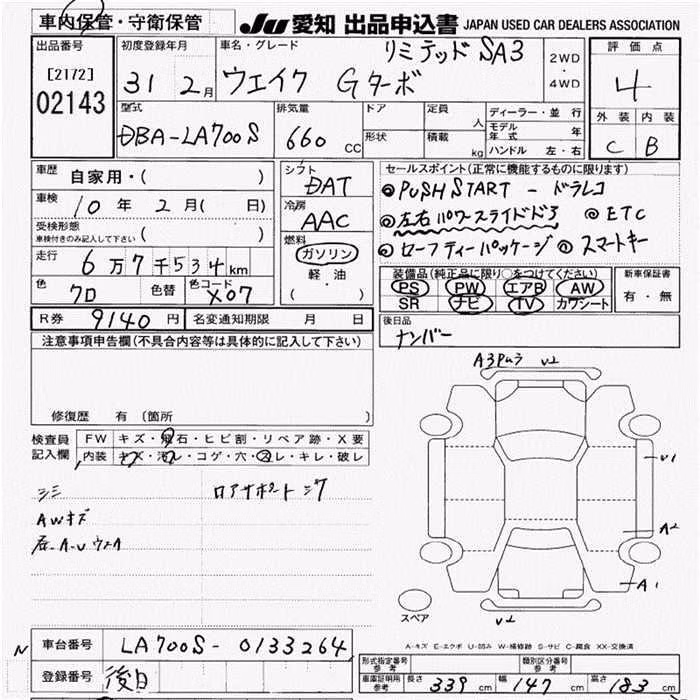 車内保管・守衛保管
JU 愛知 出品申込書 JAPAN USED CAR DEALERS ASSOCIATION
出品番号
[2172]
02143
初度登録年月
31 2月
車名・グレード
リミテッド SA3
ウェイク Gターボ
2WD
・
4WD
評価点
4
外装 内装
C B
型式
DBA-LA700S
排気量
660 CC
ドア
形状
定員 人
積載 kg
ディーラー・並行
モデル年式 年
ハンドル 左・右
車歴
自家用・( )
車検
10年 2月( 日)
受検形態
車検付きのみ記入して下さい ( )
走行
6万7千534km
色
クロ
色替
色コード
X07
シフト
DAT
冷房
AAC
燃料
ガソリン
軽油
( ・ )
セールスポイント(正常に機能するものに限ります)
◎PUSH START - ドラレコ
◎左右パワースライドドア ◎ETC
◎セーフティーパッケージ ◎スマートキー
装備品(純正品に限り○をつけてください)
PS PW エアB AW
SR ナビ TV カワシート
新車保証書
有・無
R券 9140円 名変通知期限 月 日
後日品
ナンバー
注意事項申告欄(不具合内容等は具体的に記入して下さい)
修復歴 有(箇所 )
検査員
記入欄
FW キズ・飛石・ヒビ割・リペア跡・X要
内装 キズ・汚れ・コゲ・穴・スレ・キレ・破レ
シミ
AWキズ
ロアサポートシワ
A3 U2
U1
A2
A1
U2
スペア
A-キズ E-エクボ U-凹み W-補修跡 S-サビ C-腐食 XX-交換済
N
車台番号 LA700S-0133264
登録番号 後日
形式指定番号
参考
類別区分番号
参考
車庫証明用
参考
長さ 339cm 幅 147cm 高さ 183cm